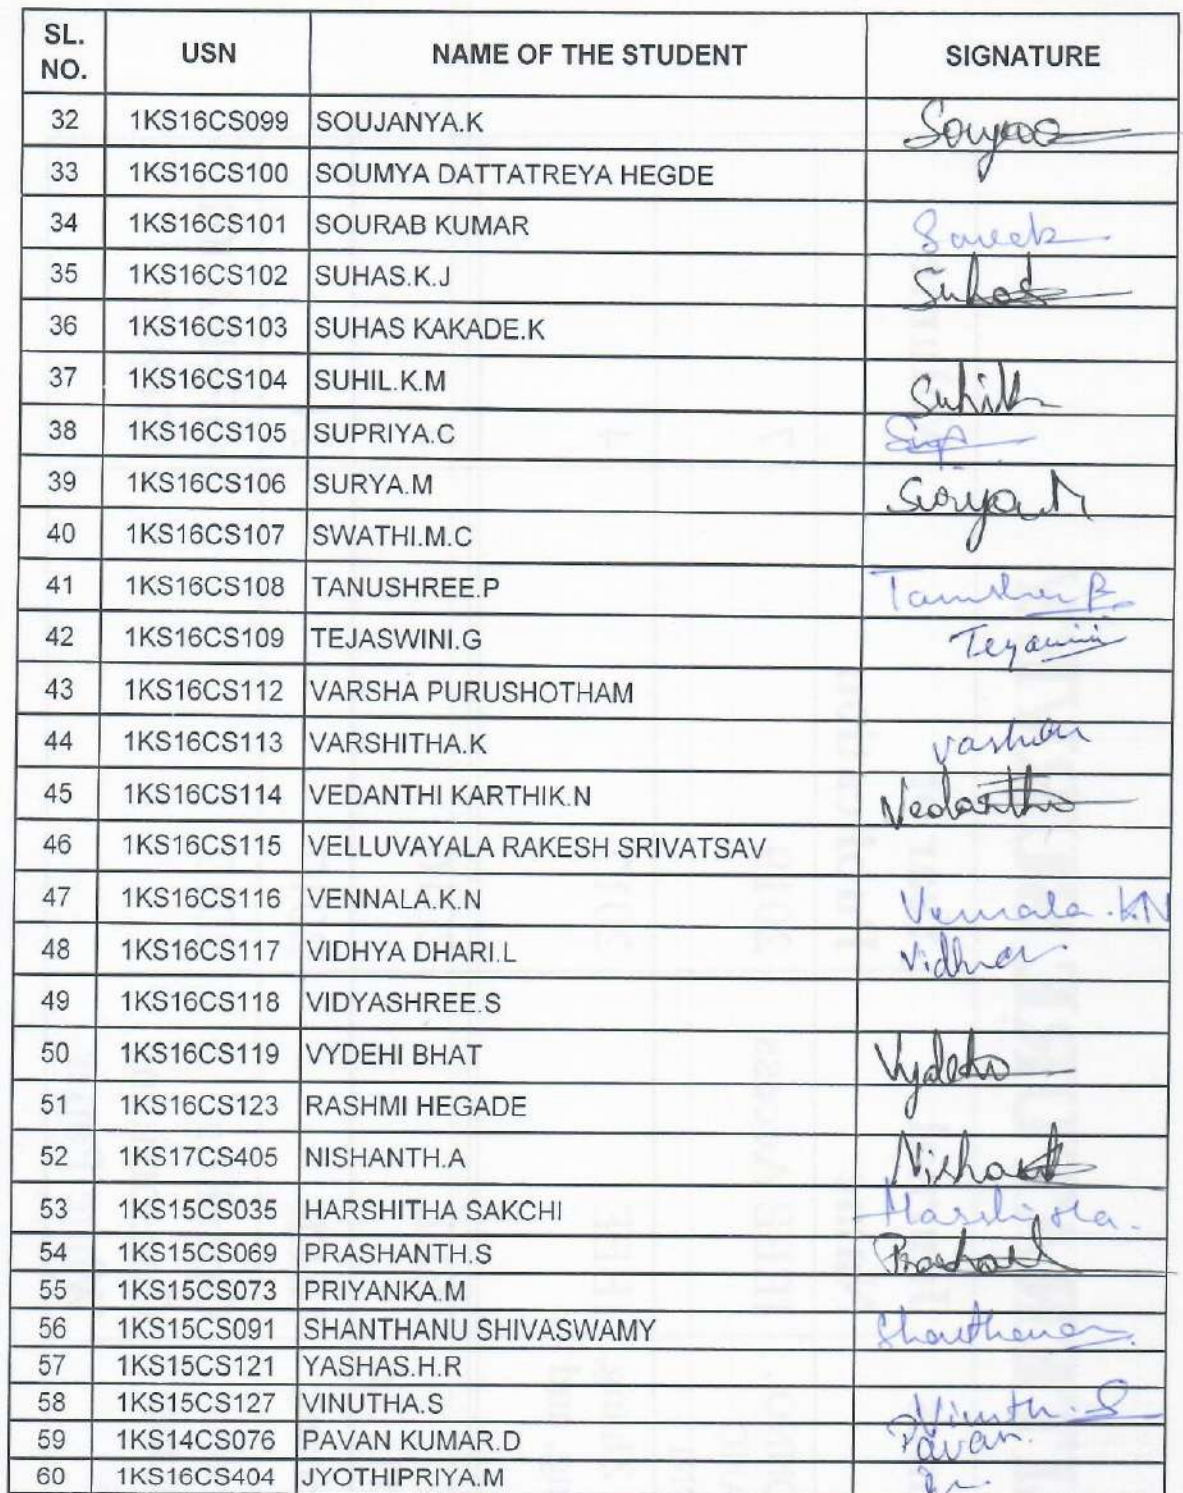 SL. NO. USN NAME OF THE STUDENT SIGNATURE
32 1KS16CS099 SOUJANYA.K
33 1KS16CS100 SOUMYA DATTATREYA HEGDE
34 1KS16CS101 SOURAB KUMAR
35 1KS16CS102 SUHAS.K.J Suhas
36 1KS16CS103 SUHAS KAKADE.K
37 1KS16CS104 SUHIL.K.M Suhil
38 1KS16CS105 SUPRIYA.C
39 1KS16CS106 SURYA.M Surya M
40 1KS16CS107 SWATHI.M.C
41 1KS16CS108 TANUSHREE.P
42 1KS16CS109 TEJASWINI.G
43 1KS16CS112 VARSHA PURUSHOTHAM
44 1KS16CS113 VARSHITHA.K
45 1KS16CS114 VEDANTHI KARTHIK.N
46 1KS16CS115 VELLUVAYALA RAKESH SRIVATSAV
47 1KS16CS116 VENNALA.K.N Vennala.KN
48 1KS16CS117 VIDHYA DHARI.L
49 1KS16CS118 VIDYASHREE.S
50 1KS16CS119 VYDEHI BHAT
51 1KS16CS123 RASHMI HEGADE
52 1KS17CS405 NISHANTH.A
53 1KS15CS035 HARSHITHA SAKCHI
54 1KS15CS069 PRASHANTH.S
55 1KS15CS073 PRIYANKA.M
56 1KS15CS091 SHANTHANU SHIVASWAMY
57 1KS15CS121 YASHAS.H.R
58 1KS15CS127 VINUTHA.S
59 1KS14CS076 PAVAN KUMAR.D Pavan.
60 1KS16CS404 JYOTHIPRIYA.M